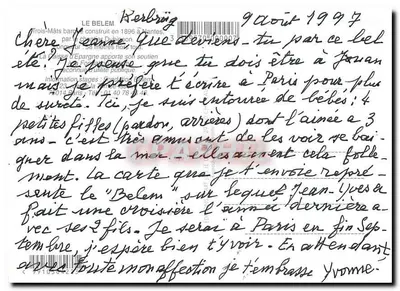 Kerbriiz 9 août 1997
LE BELEM
Trois-Mâts barque construit en 1896 à Nantes
Chère Jeanne, que deviens-tu par ce bel
été ? Je pense que tu dois être à Jouan
mais je préfère t'écrire à Paris pour plus
de sureté. Ici, je suis entourée de bébés ; 4
petites filles (pardon, arrières) dont l'ainée a 3
ans - c'est très amusant de les voir se bai-
gner dans la mer, elles aiment cela folle-
ment. La carte que je t'envoie repré-
sente le "Belem" sur lequel Jean-Yves a
fait une croisière l'année dernière a-
vec ses 2 fils. Je serai à Paris en fin Sep-
tembre, j'espère bien t'y voir. En attendant,
avec toute mon affection je t'embrasse Yvonne.